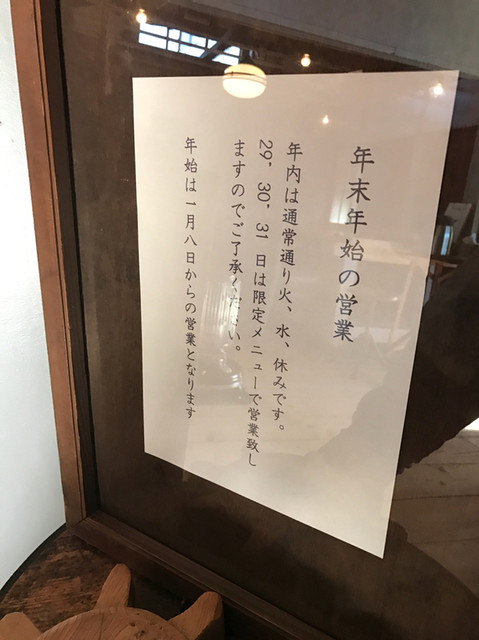 年末年始の営業
年内は通常通り火、水、休みです。
29、30、31日は限定メニューで営業致し
ますのでご了承ください。
年始は一月八日からの営業となります